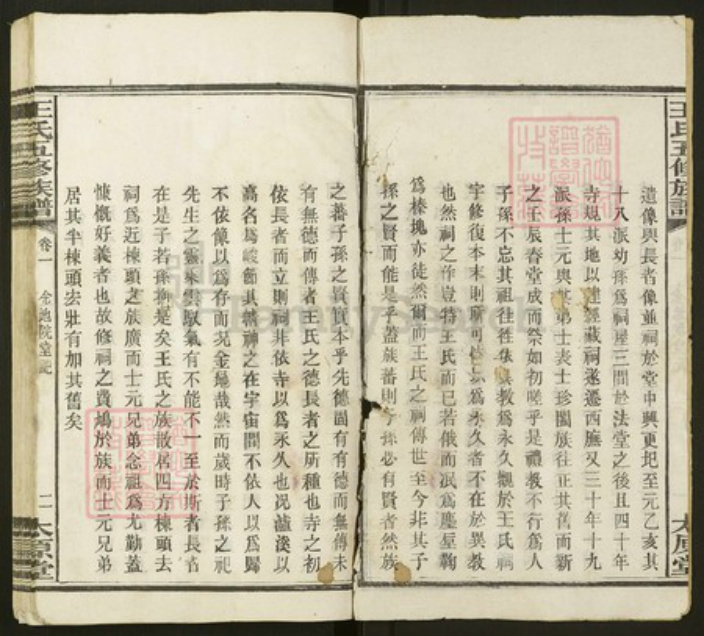 遺像與長者像並祠於堂中興更圯至元乙亥其
十八派幼孫為祠屋三間於法堂之後且四十年
寺規其地以建經藏祠遂遷西廡又三十年十九
派孫士元與其弟士表士珍閣族往正其舊而新
之壬辰春堂成而祭如初嗟乎是禮教不行為人
子孫不忘其祖往往依異教為永久觀於王氏祠
宇修復本末則所可依以為永久者不在於異教
也然祠之作豈特王氏而已若俄而泯為塵堊鞠
為榛塊亦徒然爾而王氏之祠傳世至今非其子
孫之賢而能是乎蓋族蕃則子孫必有賢者然族
王氏五修族譜
太原堂
之蕃子孫之賢實本乎先德固有有德而無傳未
有無德而傳者王氏之德長者之所種也寺之初
依長者而立則祠非依寺以為永久也况濂溪以
高名為峻節其精神之在宇宙間不依人以為歸
不依像以為存而况金地哉然而歲時子孫之祀
先生之靈乘雲馭氣有不能不一至於斯者長者
在是子若孫抑是矣王氏之族散居四方棟頭去
祠為近棟頭之族廣而士元兄弟念祖為尤勤蓋
慷慨好義者也故修祠之費鳩於族而士元兄弟
居其半棟頭宏壯有加其舊矣
王氏五修族譜
卷一
金地院堂記
二
太原堂